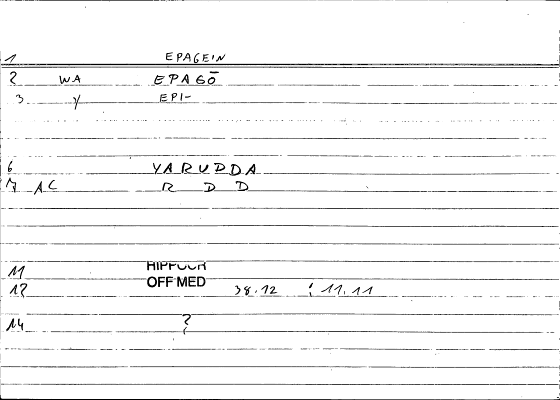 1 EPAGEIN
2 WA EPAGŌ
3 Y EPI-
6 YARUDDA
7 AC R D D
11 HIPPOCR
12 OFF MED 38.12 : 11.11
14 ?